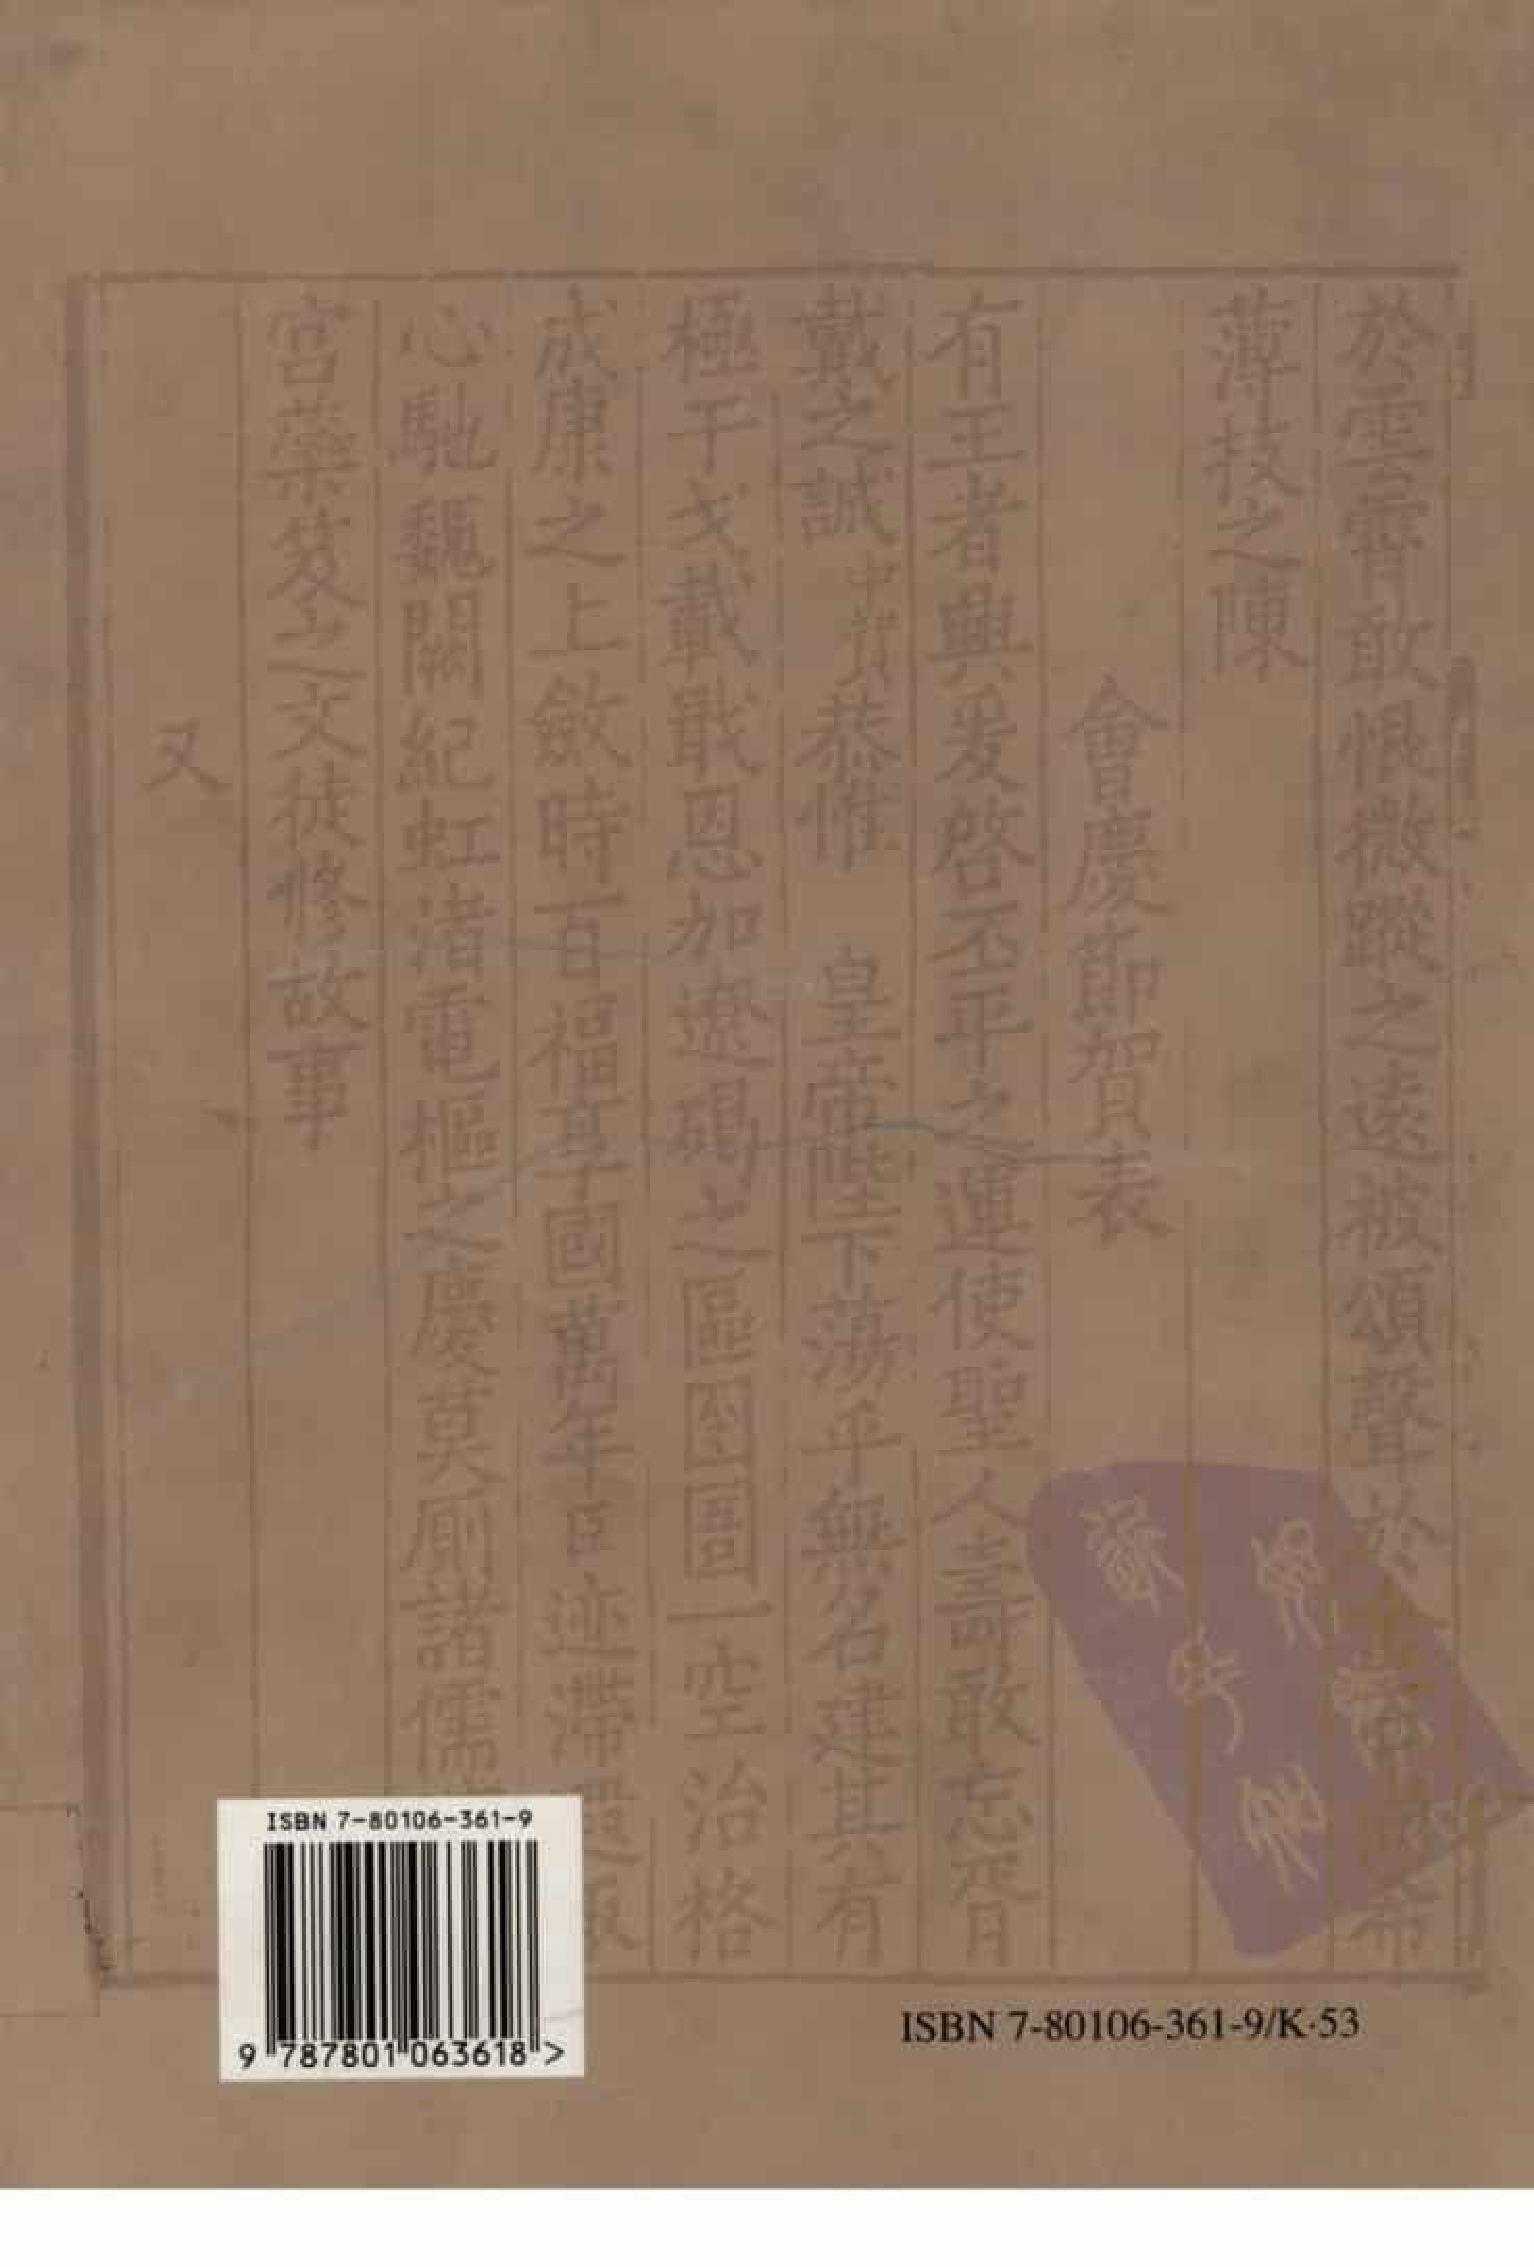 於雲霄敢恨微蹤之遠被頌聲於
希
薄技之陳
會慶節賀表
有王者興爰啓丕平之運使聖人壽敢忘胥
戴之誠中賀恭惟 皇帝陛下蕩乎無名建其有
極干戈載戢恩加遼碣之區囹圄一空治格
成康之上斂時百福享國萬年臣迹滯
心馳魏闕紀虹渚電樞之慶莫厠諸儒
宮藥笈之文徒修故事
又
ISBN 7-80106-361-9
9 787801 063618 >
ISBN 7-80106-361-9/K·53